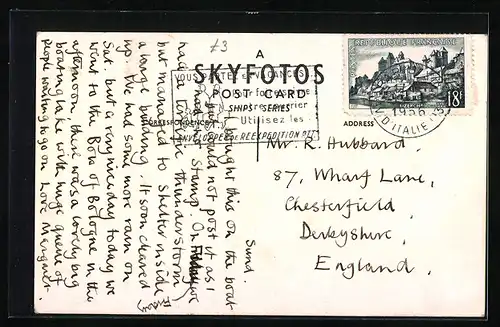 £3
A
SKYFOTOS
POST CARD
SHIPS' SERIES
CORRESPONDENCE
ADDRESS
REPUBLIQUE FRANÇAISE
18F
1956
D'ITALIE
VOUS
VACANCES
Utilisez les
ENVELOPPES DE REEXPEDITION
Sund.
I bought this on the boat
but could not post it as I
had no stamp. On Friday we
had a terrific thunderstorm
but managed to shelter inside
a large building. It soon cleared
up. We had some more rain on
Sat. but a very nice day today we
went to the Bois of Bologne in the
afternoon, there was a lovely big
boating lake with huge queue of
people waiting to go on. Love Margaret.
Mr. R. Hubbard.
87, Wharf Lane,
Chesterfield,
Derbyshire,
England.